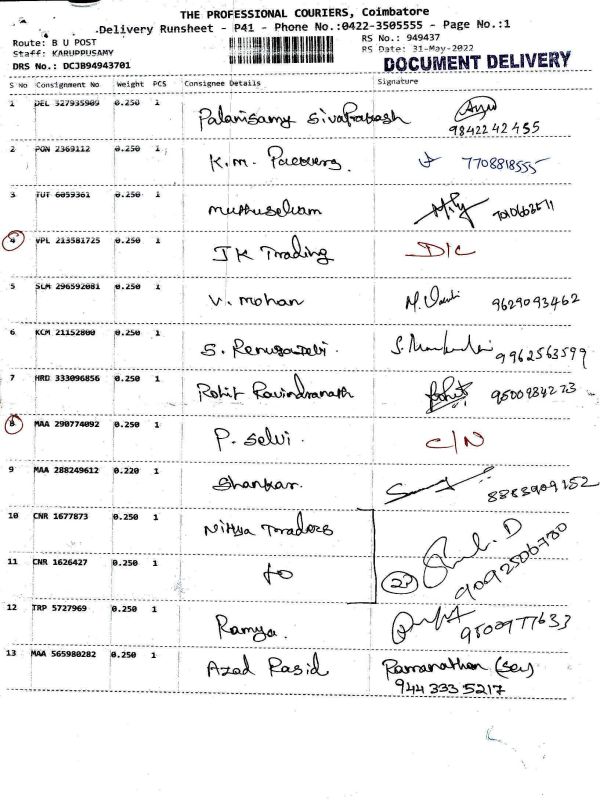 THE PROFESSIONAL COURIERS, Coimbatore
Delivery Runsheet - P41 - Phone No.:0422-3505555 - Page No.:1
Route: B U POST
RS No.: 949437
Staff: KARUPPUSAMY
RS Date: 31-May-2022
DRS No.: DCJB94943701
DOCUMENT DELIVERY
S No Consignment No Weight PCS Consignee Details Signature
1 DEL 327935909 0.250 1 Palanisamy Sivaprakash
9842242455
2 PON 2369112 0.250 1 K.m. 7708818555
3 TUT 6059361 0.250 1 muthuselvam
4 VPL 213581725 0.250 1 JK Trading D/C
5 SLM 296592081 0.250 1 V. mohan 9629093462
6 KCM 21152800 0.250 1 S. Renugadevi. 9962563599
7 HRD 333096856 0.250 1 Rohit Ravindranath 9500984273
8 MAA 290774092 0.250 1 P. Selvi. C/N
9 MAA 288249612 0.220 1 Shankar. 8883909152
10 CNR 1677873 0.250 1 Nithya Traders
11 CNR 1626427 0.250 1 to 9092506780
12 TRP 5727969 0.250 1 Ramya. 9500977633
13 MAA 565980282 0.250 1 Azad Rasid Ramanathan (Sey)
944 333 5217